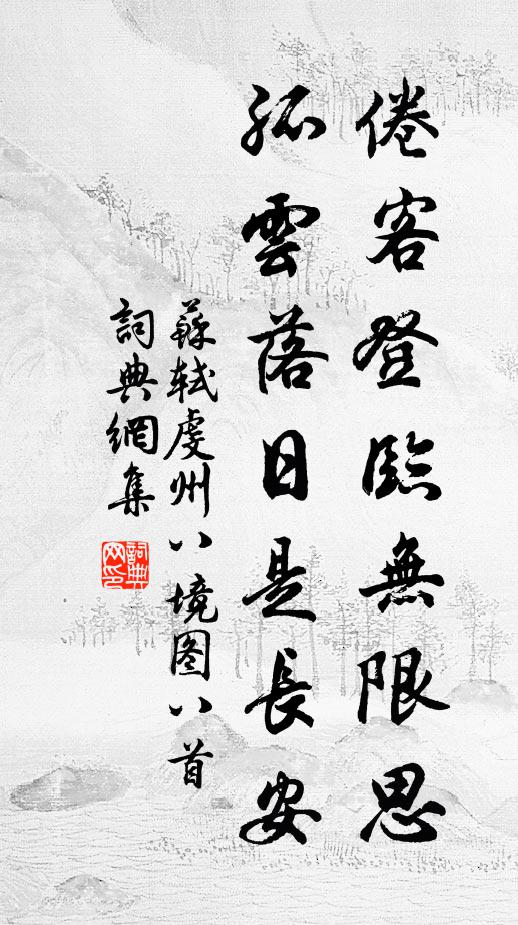 倦客登臨無限思
孤雲落日是長安
蘇軾虔州八境图八首
詞典網集
詞典网印